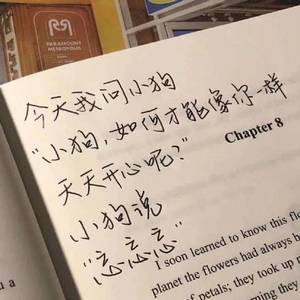 PARAMOUNT
今天我问小狗
“小狗,如何才能像你一样
天天开心呢?”
小狗说
“忘忘忘”
Chapter 8
I soon learned to know this fl
planet the flowers had always h
of petals; they took up n
u a